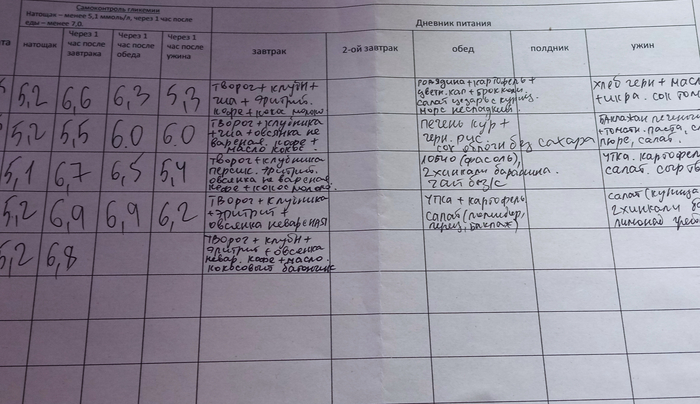 Самоконтроль гликемии
Натощак – менее 5,1 ммоль/л, через 1 час после
еды – менее 7,0.
Дневник питания
натощак
Через 1
час после
завтрака
Через 1
час после
обеда
Через 1
час после
ужина
завтрак
2-ой завтрак
обед
полдник
ужин
5,2 6,6 6,3 5,3
творог + клубн +
чиа + эритрит.
кофе + кокос. молоко
говядина + картофель +
цветн. кап + брокколи.
салат цезарь с куриц.
морс несладкий.
хлеб черн + масл
+ икра. сок том
5,2 5,5 6.0 6.0
творог + клубника
+ чиа + овсянка не
вареная. кофе +
масло кокос.
печень кур +
черн. рис
сок без сахара
баклажан печен
+ томатн. паста,
пюре, салат.
5,1 6,7 6,5 5,4
творог + клубника
персик. эритрит.
овсянка не вареная.
кофе + кокос молоко.
лобио (фасоль),
2 хинкали баранина.
чай без/с
утка. картофель
салат. сыр тв
5,2 6,9 6,9 6,2
творог + клубника
+ эритрит +
овсянка невареная
утка + картофель
салат (помидор,
перец, баклаж)
салат (куриц
2 хинкали ба
лимонад
5,2 6,8
творог + клубн +
эритрит + овсянка
невар. кофе + масло.
кокосовый батончик